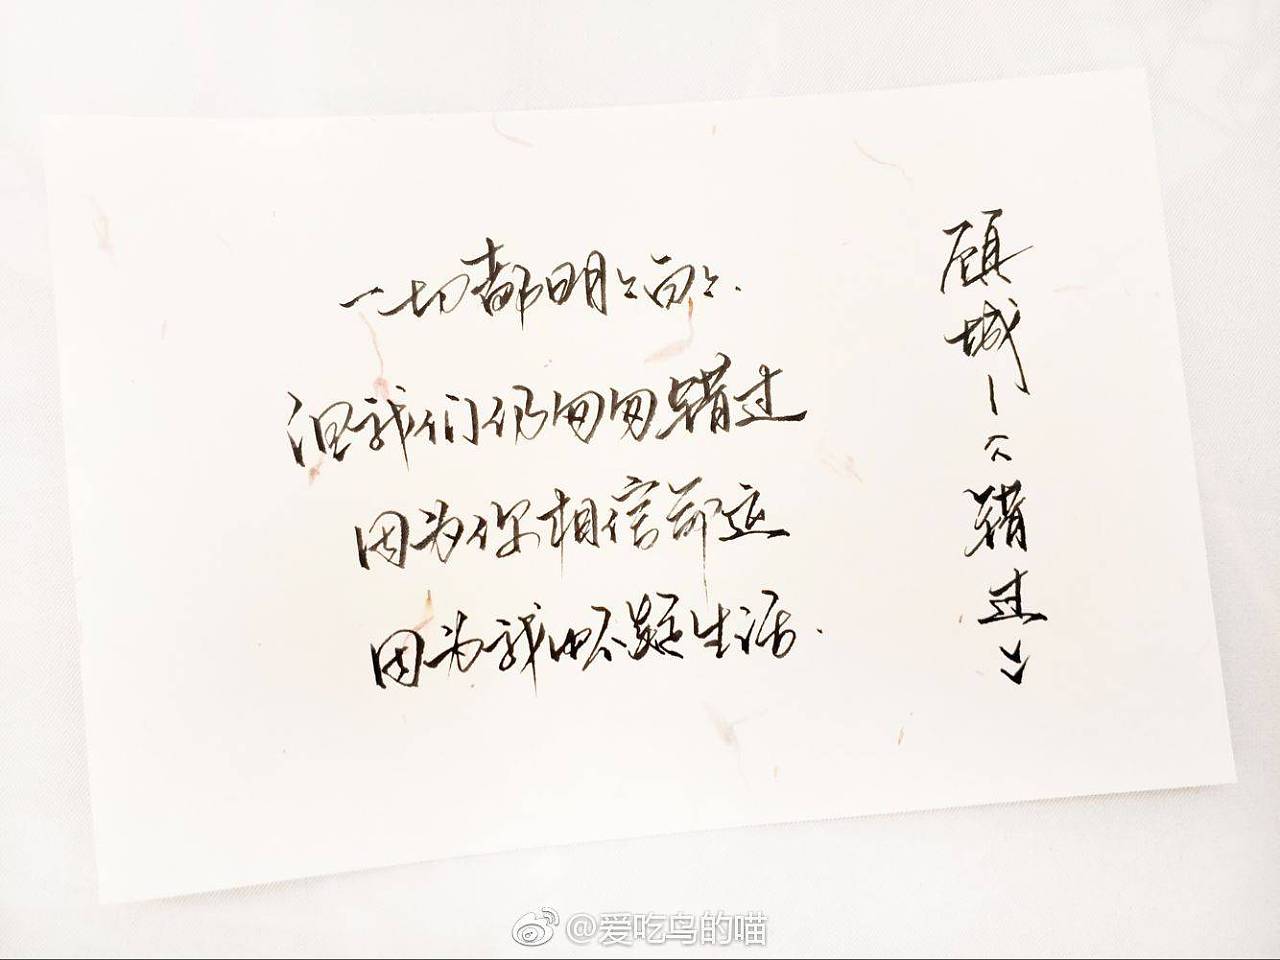 一切都明明白白.
但我们仍匆匆错过
因为你相信命运
因为我怀疑生活.
顾城—《错过》
@爱吃鸟的喵